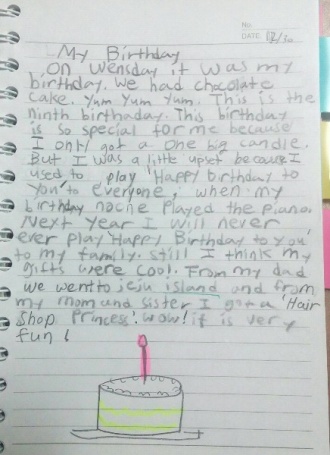 No.
DATE 12/30
My Birthday
On Wensday it was my
birthday. We had chocolate
cake. Yum Yum Yum. This is the
ninth birthaday. This birthday
is so special for me because
I only got a one big candle.
But I was a little upset because I
used to play 'Happy birthday to
you' to everyone, when my
birthday nocne played the piano.
Next year I will never
ever play 'Happy Birthday to you'
to my family. Still I think my
gifts were cool. From my dad
we went to jeju island and from
my mom and sister I got a 'Hair
Shop Princess'. Wow! it is very
fun!